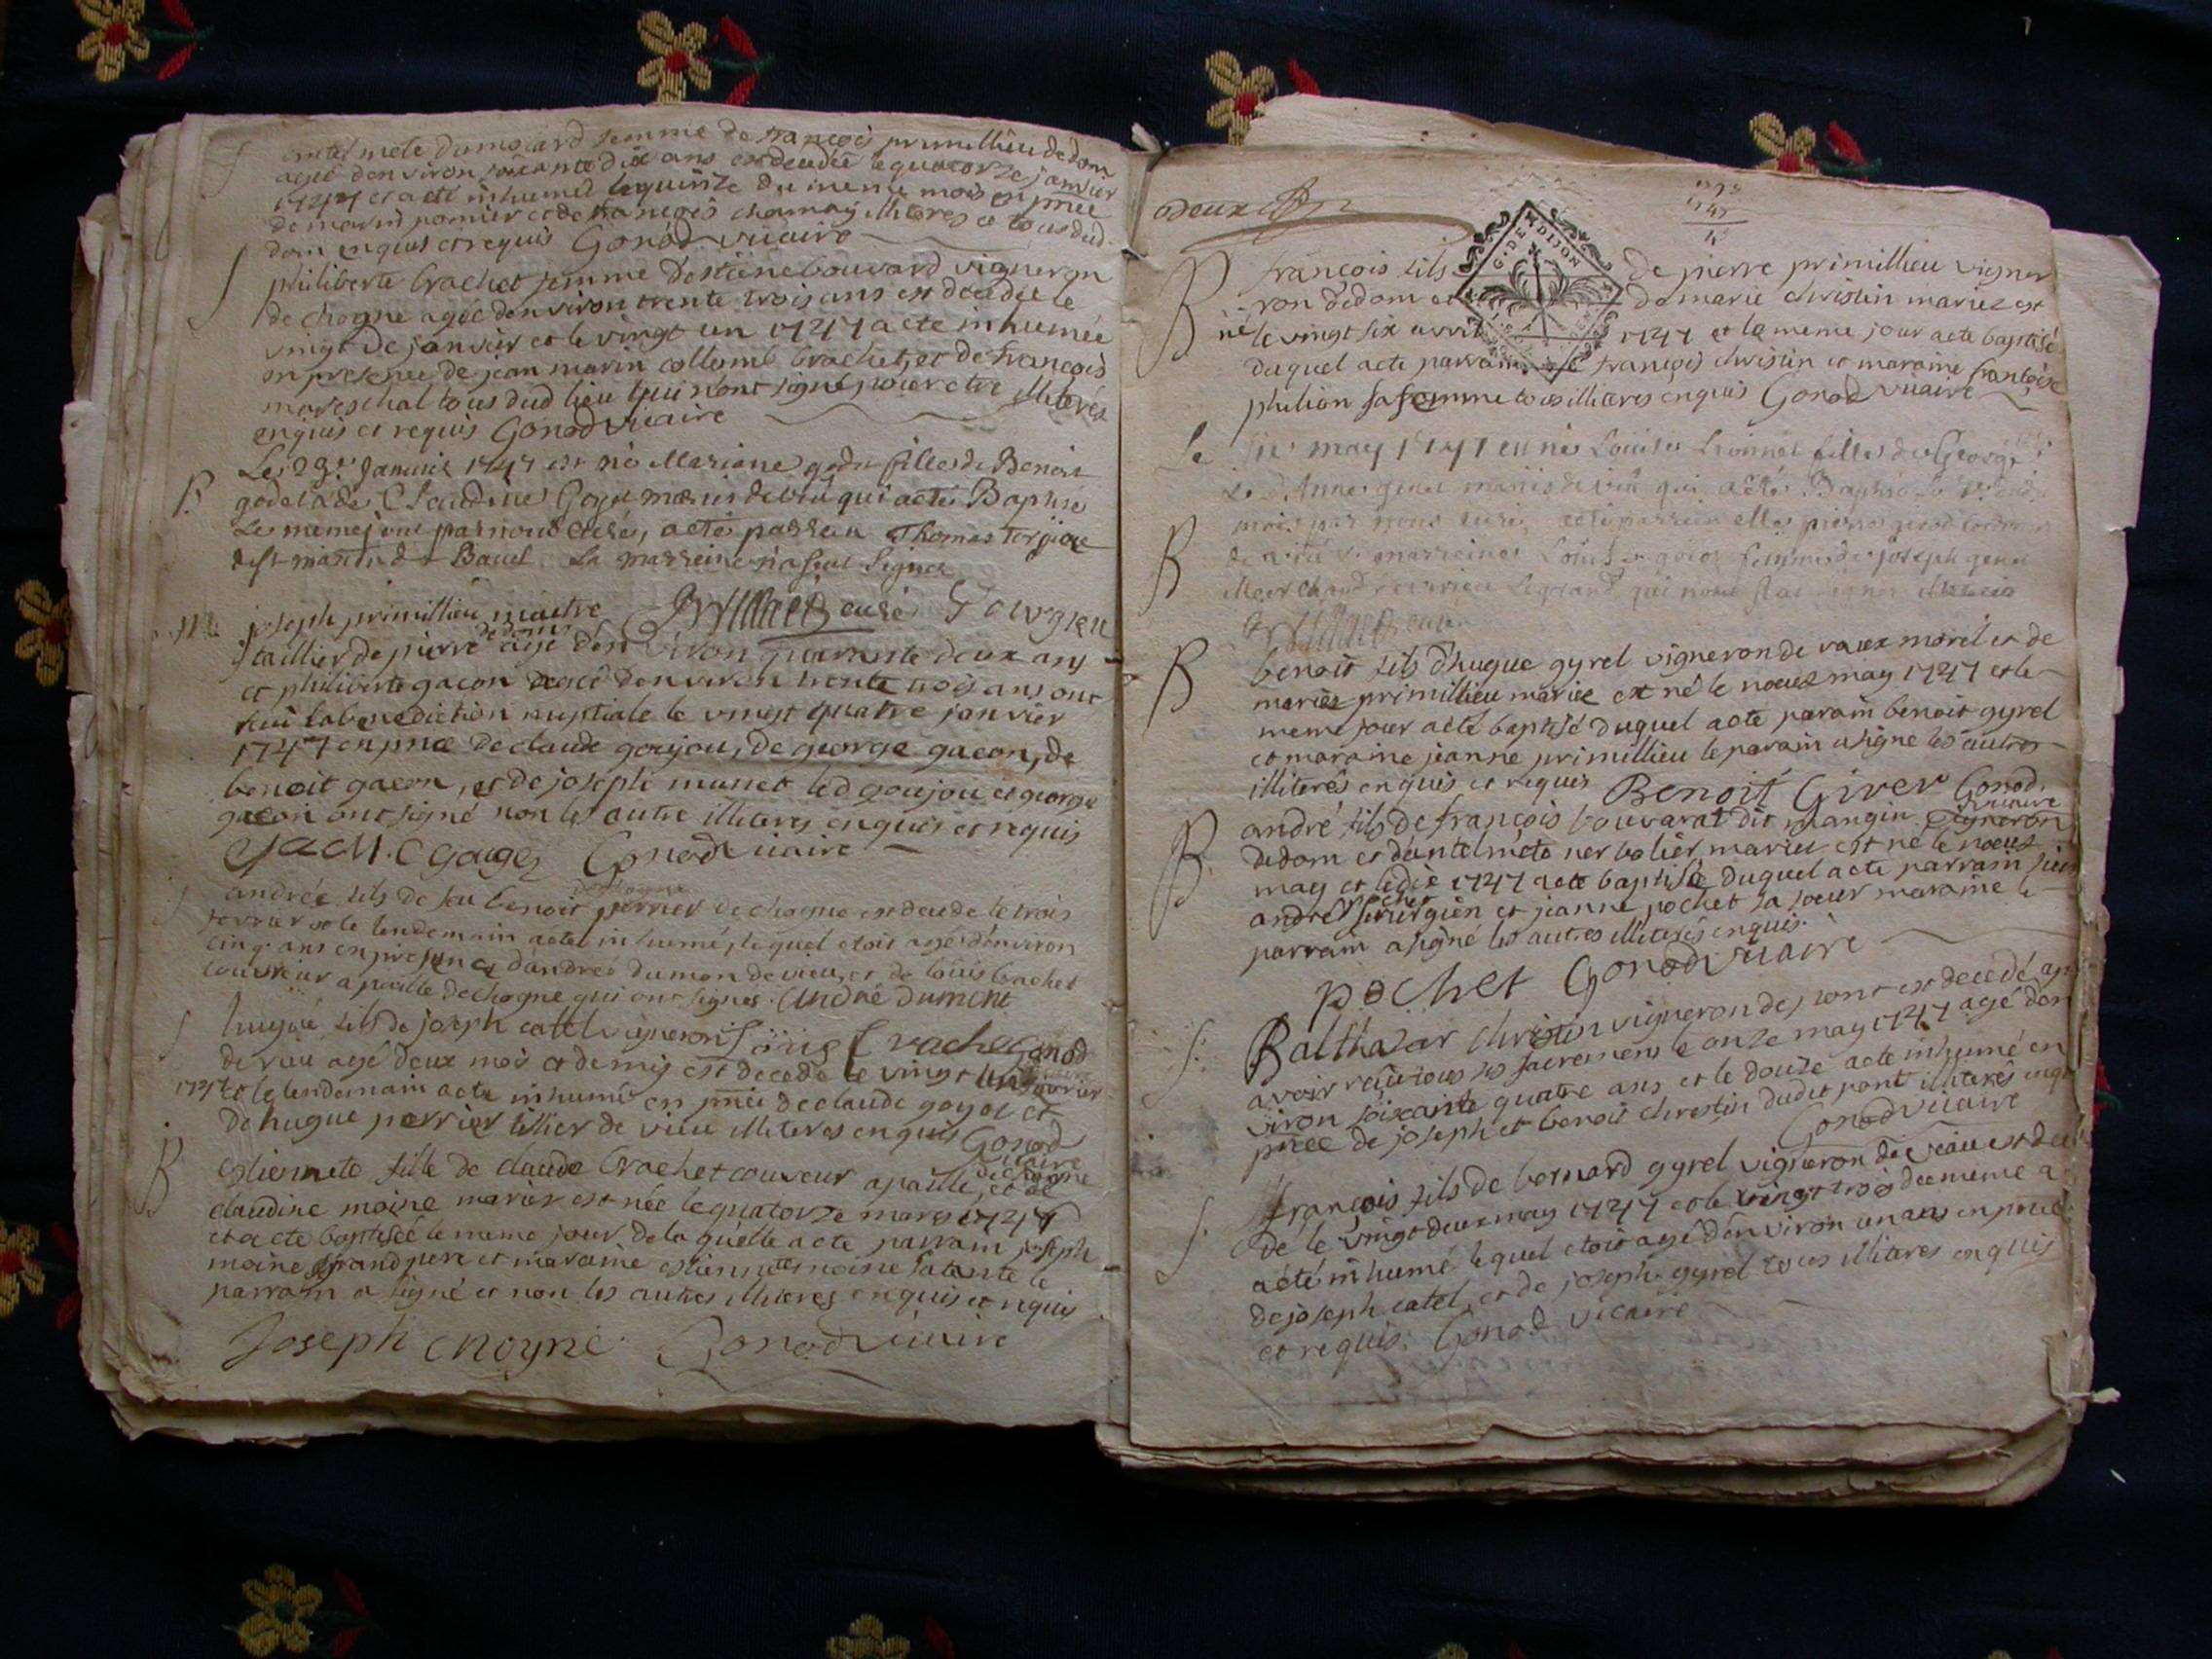 femme de françois primillieu de dom
agée denviron soixante dix ans est decedée le quatorze janvier
1747 et a eté inhumée le quinze du meme mois en pñce
de marin pomier et de françois chamay illiteres et tous dud.
dom enquis et requis Gonod vicaire
philiberte brachet femme destiene bouvard vigneron
de chogne agée denviron trente trois ans est decedée le
vingt de janvier et le vingt un 1747 a eté inhumée
en presence de jean marin collomb brachet, et de françois
mareschal tous dud lieu qui n'ont signé pour etre illiterés
enquis et requis Gonod vicaire
Le 23e Janvier 1747 est né Mariane godet fille de Benoit
godet & de Claudine Goyet mariés de vieu qui a eté Baptisé
le meme jour par nous curé, a eté parrain Thomas
La marreine n'a seut signer
M joseph primillieu maitre curé
taillier de pierre de dom agé denviron quarante deux ans
et philiberte gacon agée denviron trente trois ans ont
recu la benediction nuptiale le vingt quatre janvier
1747 en pnce de claude goujou, de george gacon, de
benoit gacon, et de joseph munet led goujou et george
gacon ont signé non les autre illiteres enquis et requis
Gonod vicaire
andrée fils de feu benoit perner de chogne est decedé le trois
fevrier et le lendemain a eté inhumé, lequel etoit agé denviron
cinq ans en presence dandreé dumon de vieu, et de louis brachet
couvreur a paille de chogne qui ont signés. André dument
hugue fils de joseph catel vigneron Louis Brachet Gonod
de vieu agé deux mois et demis est decedé le vingt un fevrier
1747 et le lendemain a eté inhumé en pñce de claude goyet et
de hugue perrier tillier de vieu illiteres enquis Gonod
vicaire
B estiennete fille de claude brachet couvreur a paille, et de
claudine moine mariés est née le quatorze mars 1747
et a eté baptisée le meme jour, de la quelle a eté parrain joseph
moine grand pere et maraine estiennete moine sa tante le
parrain a signé et non les autres illiteres enquis et requis
Joseph moyne Gonod vicaire
deux
G. DE DIJON
B françois fils de pierre primillieu vigne
ron de dom et de marie christin mariez est
né le vingt six avril 1747 et le meme jour a eté baptisé
duquel a eté parrain françois christin et maraine françoise
philion sa femme tous illiteres enquis Gonod vicaire
Le six may 1747 est né Louise fille de George
& d'Anne genet mariés de vieu qui a eté Baptisé le
mois par nous curé, a eté parrein
B de vieu & marreine Louise goyet femme de joseph genet
Marchand
curé
B benoit fils d'hugue gyrel vigneron de vaux morel et de
marie primillieu mariée est né le noeuf may 1747 et le
meme jour a eté baptisé duquel a eté parain benoit gyrel
et maraine jeanne primillieu le parain a signé les autres
illiterés enquis et requis Benoit Girer Gonod
vicaire
B andré fils de françois bouvarat dit mangin vigneron
de dom et dantelmete ner balier mariez est né le noeuf
may et le dix 1747 a eté baptisé duquel a eté parrain
andré pochet sirurgien et jeanne pochet sa soeur maraine le
parrain a signé les autres illiterés enquis.
pochet Gonod vicaire
S. Balthazar christin vigneron de pont est decedé ap
avoir reçu tous ses sacremens le onze may 1747 agé den
viron soixante quatre ans et le douze a eté inhumé en
pñce de joseph et benoit christin dudit pont illiterés enq
Gonod vicaire
S. françois fils de bernard gyrel vigneron de vieu est dece
dé le vingt deux may 1747 et le vingt trois du meme a
a eté inhumé lequel etoit agé denviron un ans en pnce
de joseph catel, et de joseph gyrel tous illiteres enquis
et requis. Gonod vicaire